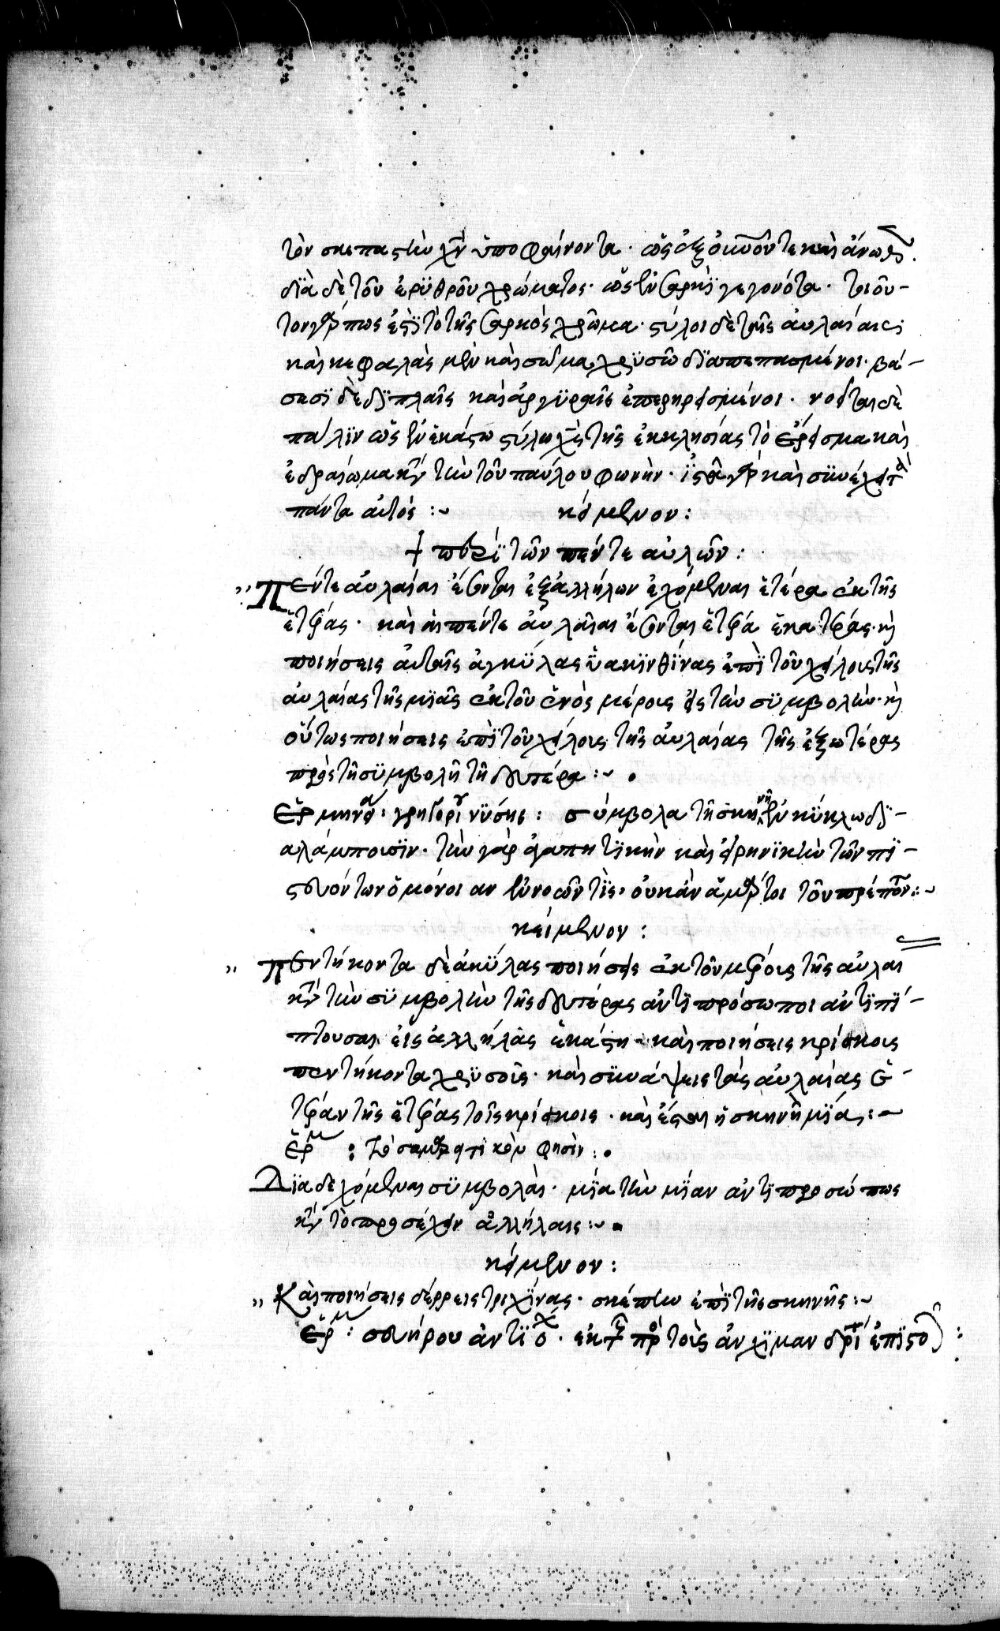 τὸν σκεπαστὴν χν ὑποφαίνοντα · ὡς ἐξ οὐνοῦ τε καὶ ἄνωθεν.
διὰ δὲ τοῦ ἐρυθροῦ χρώματος · ὡς ἐν σαρκὶ γεγονότα · τοιοῦ-
τον γάρ πως ἐστὶ τὸ τῆς σαρκὸς χρῶμα · στύλοι δὲ τῆς αὐλαίας
καὶ κεφαλὰς μὲν καὶ σῶμα χρυσῷ διαπεπασμένοι · βά-
σεσι δὲ διπλαῖς καὶ ἀργυραῖς ἐπερηρεισμένοι · νοεῖται δὲ
πάλιν ὡς ἐν ἑκάστῳ στύλῳ χς τῆς ἐκκλησίας τὸ ἔρεισμα καὶ
ἑδραίωμα κτ τὴν τοῦ παύλου φωνήν · ἱστᾷ γὰρ καὶ συνέχει τὰ
πάντα αὐτός :~ κείμενον :
+ περὶ τῶν πέντε αὐλῶν :
" Πέντε αὐλαίαι ἔσονται ἐξ ἀλλήλων ἐχόμεναι ἑτέρα ἐκ τῆς
ἑτέρας · καὶ αἱ πέντε αὐλαῖαι ἔσονται ἑτέρα ἐκ ἑτέρας · κ
ποιήσεις αὐταῖς ἀγκύλας ὑακινθίνας ἐπὶ τοῦ χείλους τῆς
αὐλαίας τῆς μιᾶς ἐκ τοῦ ἑνὸς μέρους εἰς τὴν συμβολήν · κ
οὕτως ποιήσεις ἐπὶ τοῦ χείλους τῆς αὐλαίας τῆς ἐξωτέρας
πρὸς τῇ συμβολῇ τῇ δευτέρα :~ •
Ερμηνεία · γρηγορίου νύσης : σύμβολα τῇ σκηνῇ ἐν κύκλω δι-
αλάμπουσιν · τὴν γὰρ ἀγαπητικὴν καὶ εἰρηνικὴν τῶν πι-
στευόντων ὁμόνοιαν ἐννοῶν τις · οὐκ ἂν ἁμάρτοι τοῦ πρέποντος :~
κείμενον :
" Πεντήκοντα δὲ ἀκύλας ποιήσεις ἐκ τοῦ μέρους τῆς αὐλαί
κτ τὴν συμβολὴν τῆς δευτέρας ἀντιπρόσωποι ἀντιπί-
πτουσαι εἰς ἀλλήλας ἑκάστη · καὶ ποιήσεις κρίκους
πεντήκοντα χρυσοῦς · καὶ συνάψεις τὰς αὐλαίας ἑ-
τέραν τῆς ἑτέρας τοῖς κρίκοις · καὶ ἔσται ἡ σκηνὴ μία :~
ἑρμ : τὸ σαμαρειτικὸν φησίν : •
Διαδεχόμεναι συμβολάς · μία τὴν μίαν ἀντιπροσώπως
κτ τὸ προσέχειν ἀλλήλαις :~ •
κείμενον :
" Καὶ ποιήσεις δέρρεις τριχίνας · σκέπην ἐπὶ τῆς σκηνῆς :~
ἑρμ : σευήρου ἀντιοχ · ἐκ τ πρ τοὺς